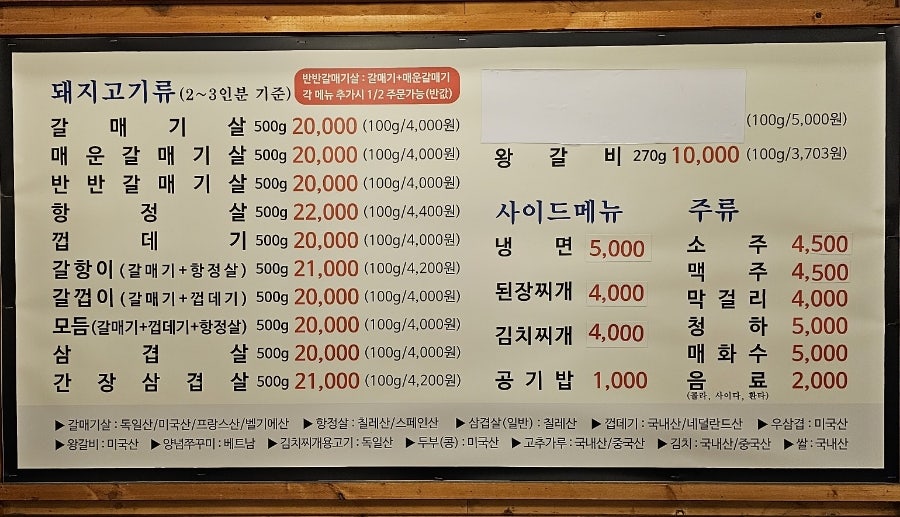 돼지고기류(2~3인분 기준)
반반갈매기살 : 갈매기+매운갈매기
각 메뉴 추가시 1/2 주문가능(반값)
갈매기살 500g 20,000 (100g/4,000원)
매운갈매기살 500g 20,000 (100g/4,000원)
반반갈매기살 500g 20,000 (100g/4,000원)
항정살 500g 22,000 (100g/4,400원)
껍데기 500g 20,000 (100g/4,000원)
갈항이(갈매기+항정살) 500g 21,000 (100g/4,200원)
갈껍이(갈매기+껍데기) 500g 20,000 (100g/4,000원)
모듬(갈매기+껍데기+항정살) 500g 20,000 (100g/4,000원)
삼겹살 500g 20,000 (100g/4,000원)
간장삼겹살 500g 21,000 (100g/4,200원)
(100g/5,000원)
왕갈비 270g 10,000 (100g/3,703원)
사이드메뉴
냉면 5,000
된장찌개 4,000
김치찌개 4,000
공기밥 1,000
주류
소주 4,500
맥주 4,500
막걸리 4,000
청하 5,000
매화수 5,000
음료 2,000
(콜라, 사이다, 환타)
▶갈매기살 : 독일산/미국산/프랑스산/벨기에산 ▶항정살 : 칠레산/스페인산 ▶삼겹살(일반) : 칠레산 ▶껍데기 : 국내산/네덜란드산 ▶우삼겹 : 미국산
▶왕갈비 : 미국산 ▶양념쭈꾸미 : 베트남 ▶김치찌개용고기 : 독일산 ▶두부(콩) : 미국산 ▶고추가루 : 국내산/중국산 ▶김치 : 국내산/중국산 ▶쌀 : 국내산